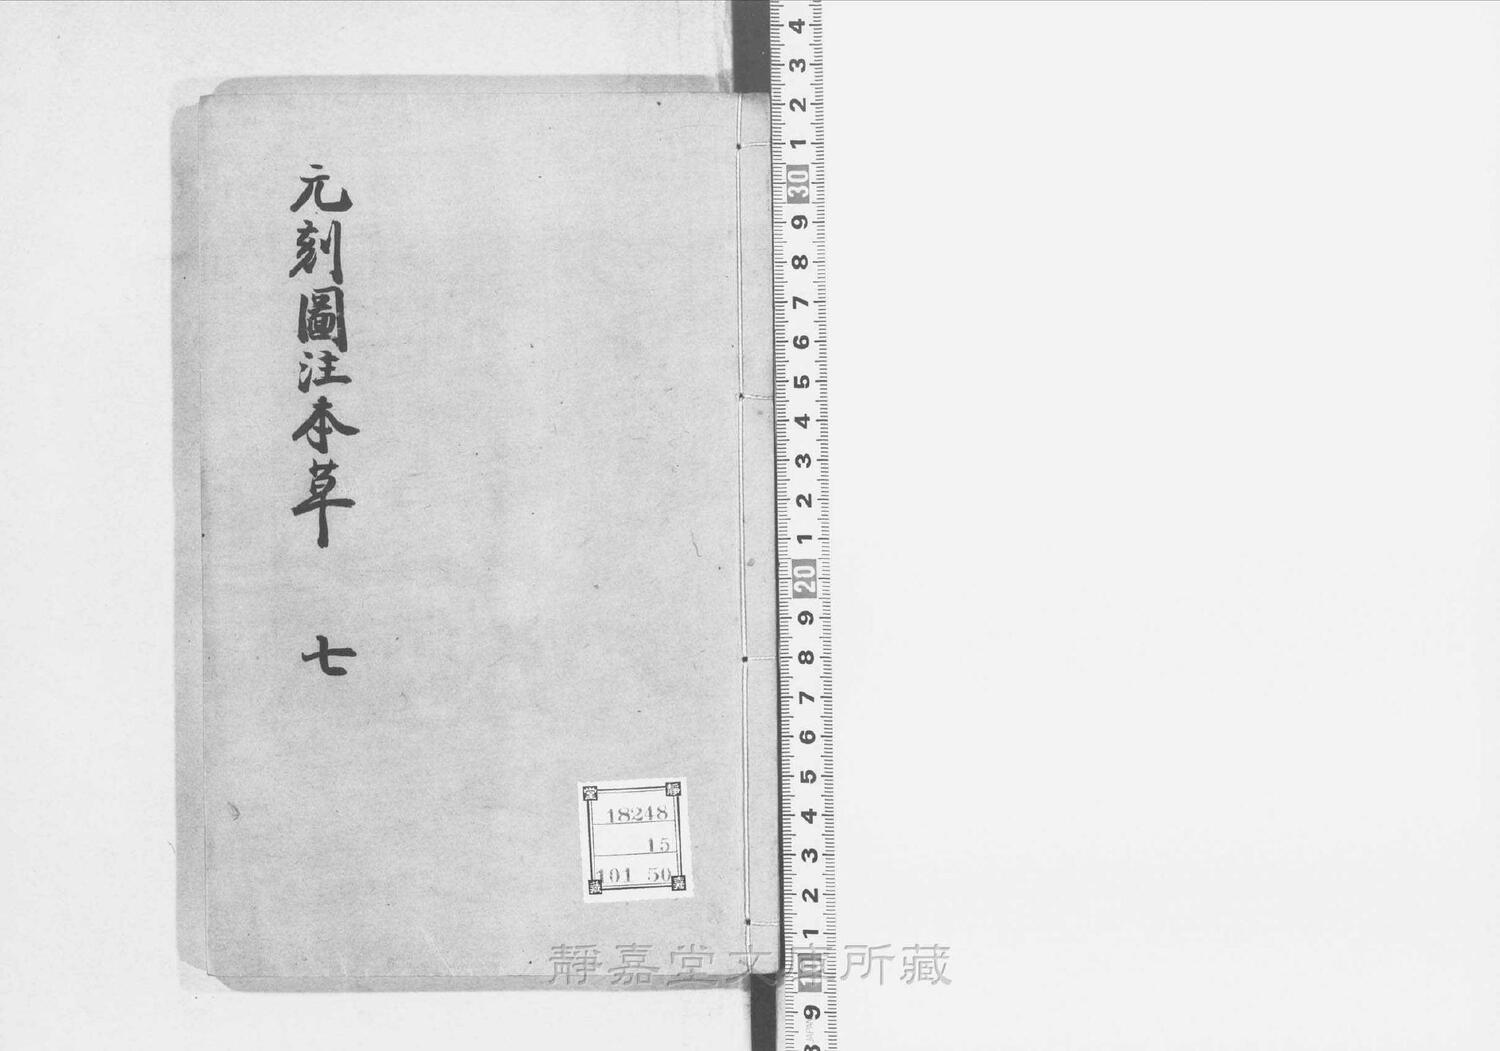 元刻圖注本草 七
靜 堂
18248
15
101 50
嘉 藏
靜嘉堂文庫所藏
4
3
2
1
30
9
8
7
6
5
4
3
2
1
20
9
8
7
6
5
4
3
2
1
10
9
8
JAPAN